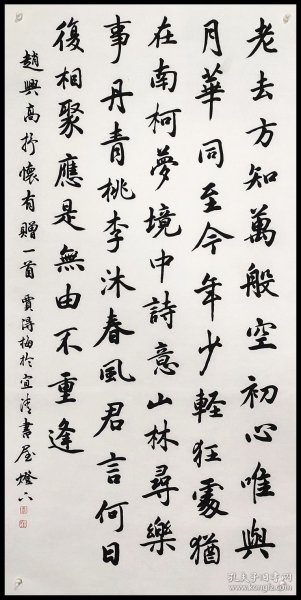 老去方知萬般空初心唯與
月華同至今年少輕狂處猶
在南柯夢境中詩意山林尋樂
事丹青桃李沐春風君言何日
復相聚應是無由不重逢
趙興高抒懷有贈一首 賈得梅於宜清書屋燈下
孔夫子旧书网